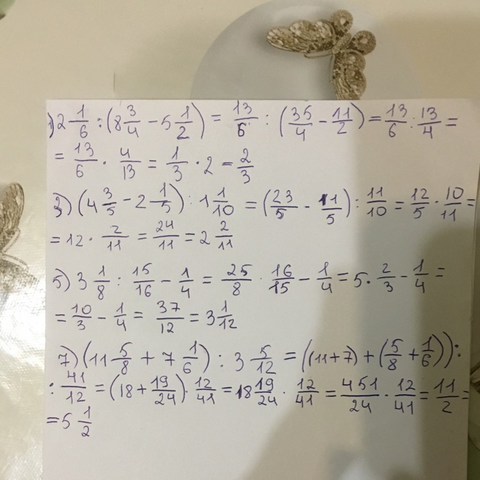 1) 2 1/6 : (8 3/4 − 5 1/2) = 13/6 : (35/4 − 11/2) = 13/6 : 13/4 =
= 13/6 · 4/13 = 1/3 · 2 = 2/3
3) (4 3/5 − 2 1/5) : 1 1/10 = (23/5 − 11/5) : 11/10 = 12/5 · 10/11 =
= 12 · 2/11 = 24/11 = 2 2/11
5) 3 1/8 : 15/16 − 1/4 = 25/8 · 16/15 − 1/4 = 5 · 2/3 − 1/4 =
= 10/3 − 1/4 = 37/12 = 3 1/12
7) (11 5/8 + 7 1/6) : 3 5/12 = ((11+7) + (5/8 + 1/6)) :
: 41/12 = (18 + 19/24) · 12/41 = 18 19/24 · 12/41 = 451/24 · 12/41 = 11/2 =
= 5 1/2